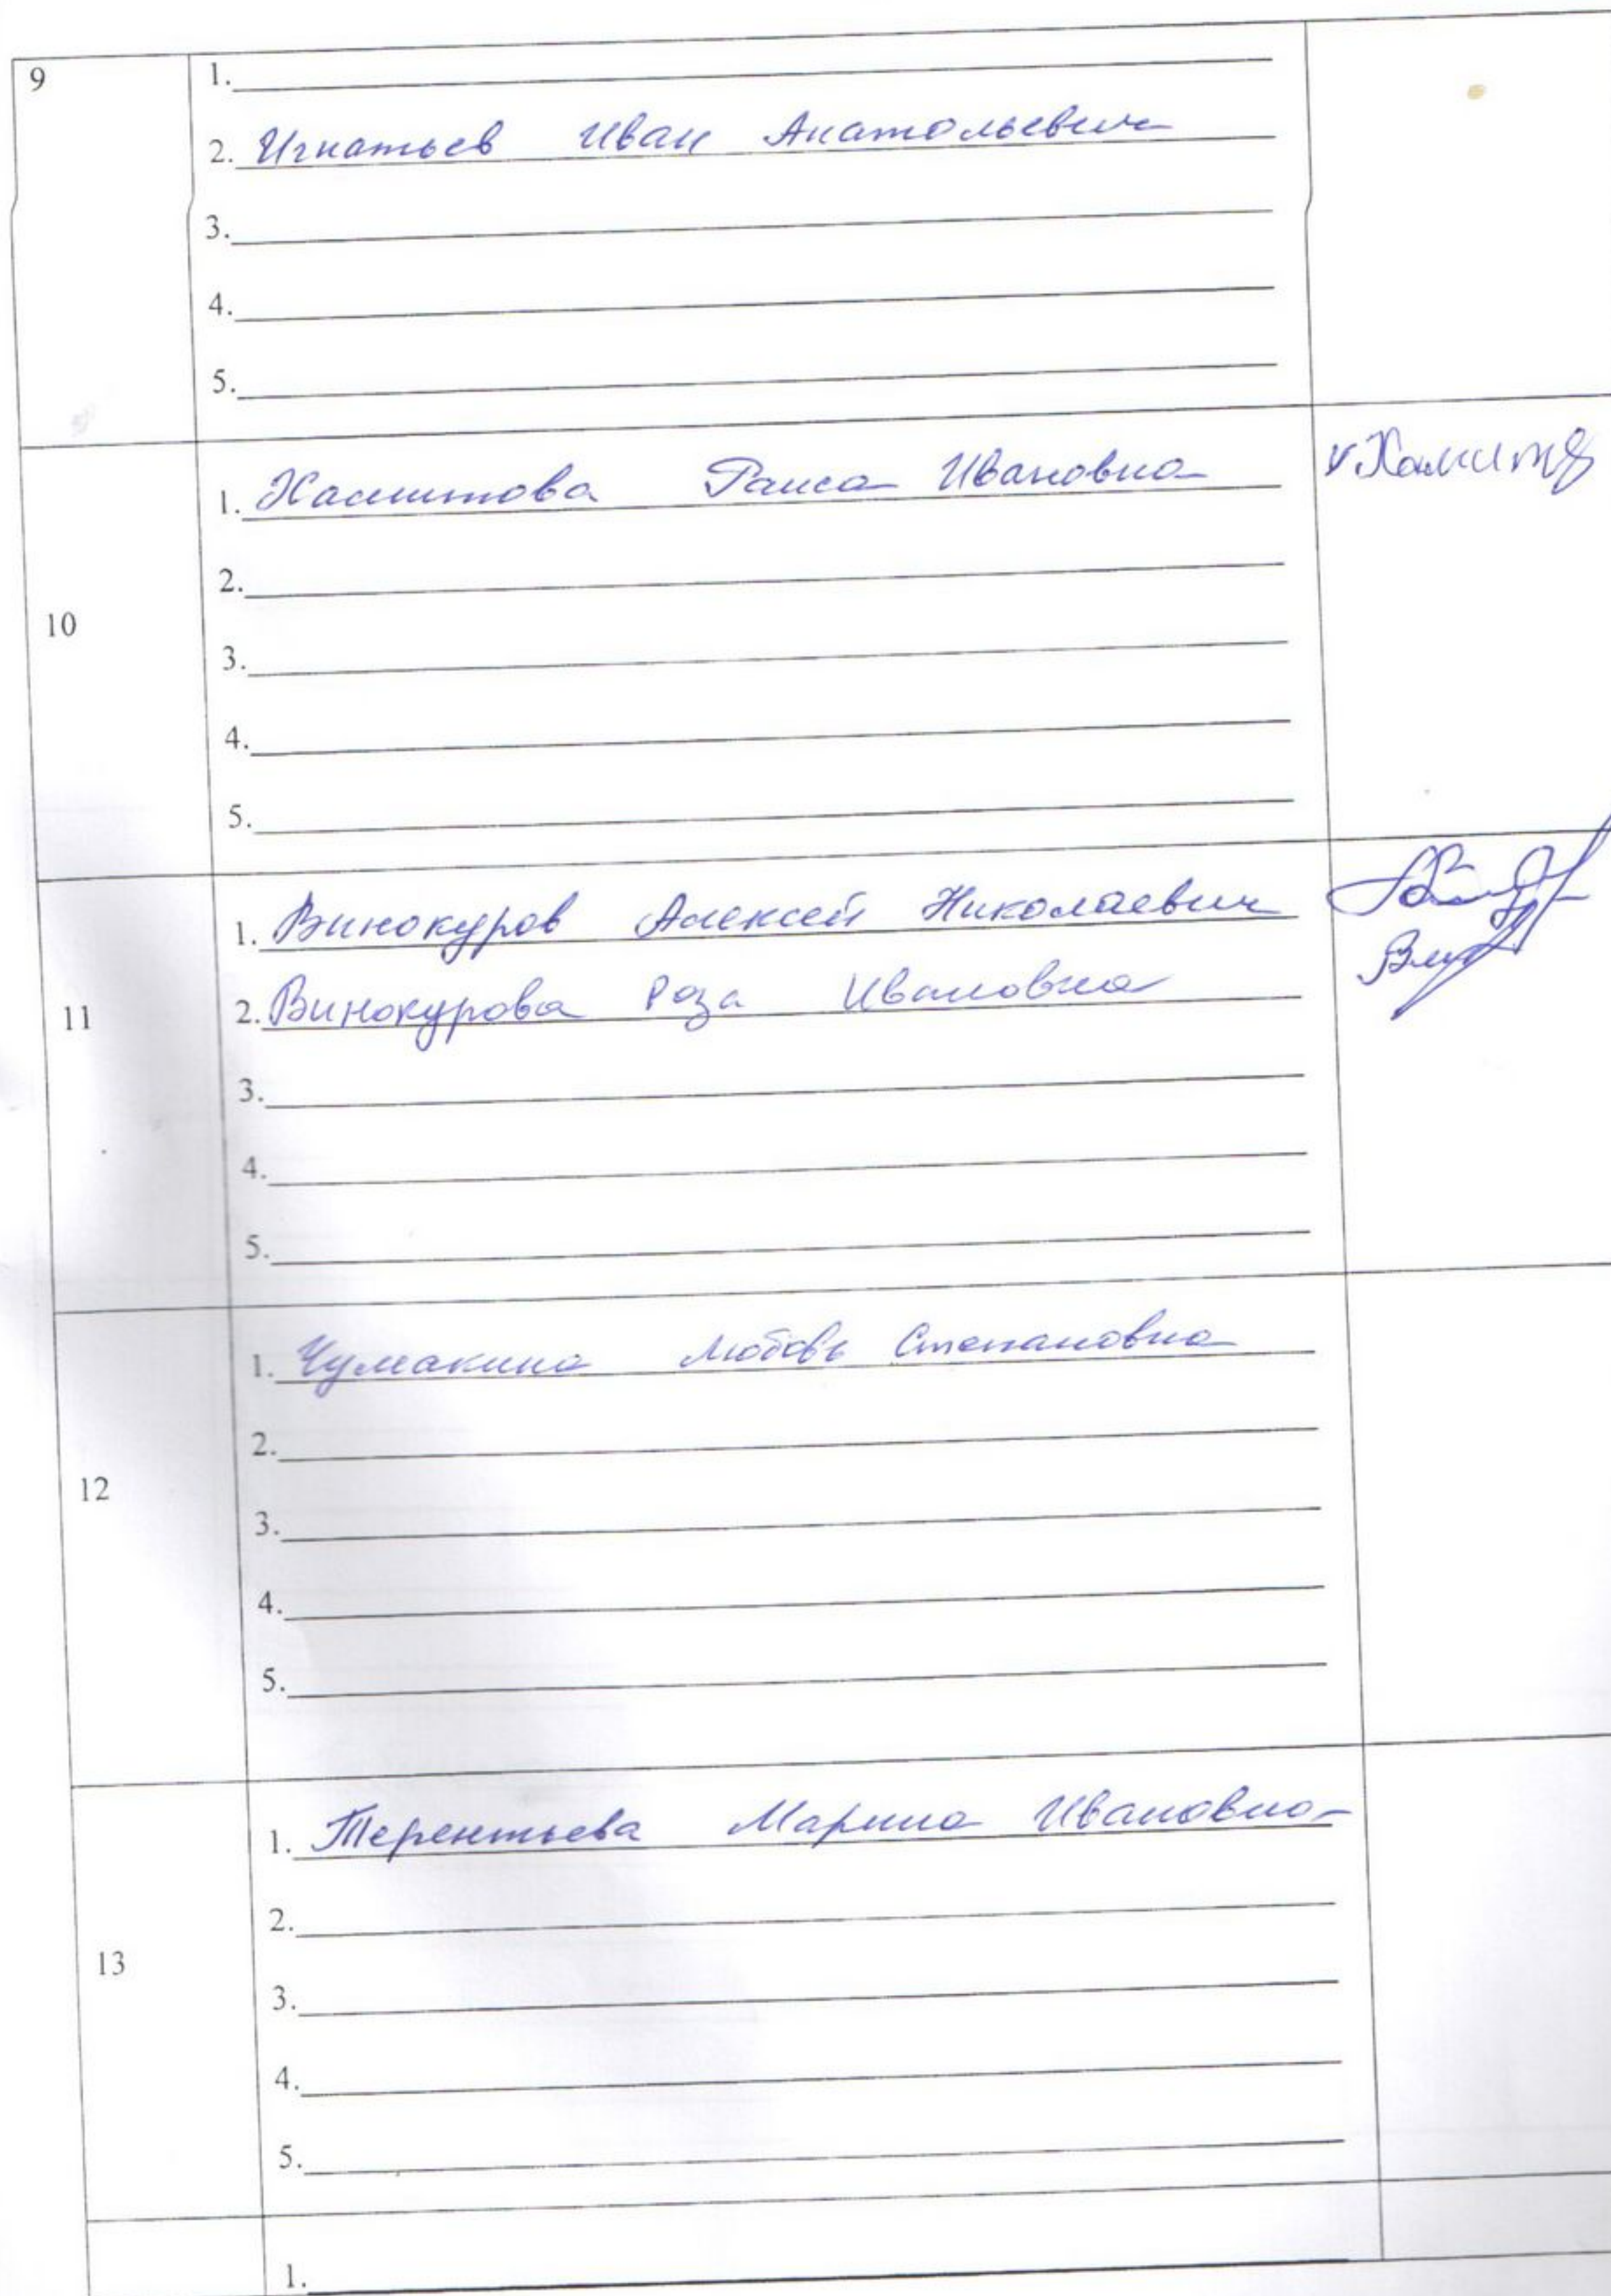 9
1.
2. Игнатьев Иван Анатольевич
3.
4.
5.
10
1. Хамитова Раиса Ивановна
2.
3.
4.
5.
11
1. Винокуров Алексей Николаевич
2. Винокурова Роза Ивановна
3.
4.
5.
12
1. Чумакина Любовь Степановна
2.
3.
4.
5.
13
1. Терентьева Марина Ивановна
2.
3.
4.
5.
1.